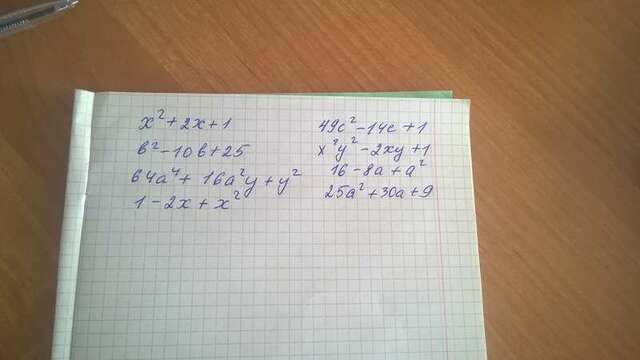 x² + 2x + 1
b² - 10b + 25
64a⁴ + 16a²y + y²
1 - 2x + x²
49c² - 14c + 1
x²y² - 2xy + 1
16 - 8a + a²
25a² + 30a + 9